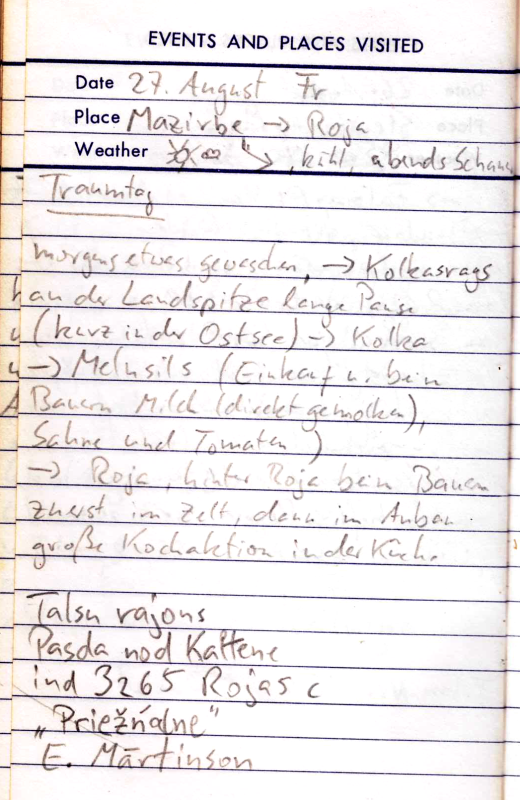 EVENTS AND PLACES VISITED
Date 27. August Fr
Place Mazirbe → Roja
Weather , kühl, abends Schauer
Traumtag
morgens etwas gewaschen, → Kolkasrags
an der Landspitze lange Pause
(kurz in der Ostsee) → Kolka
→ Melnsils (Einkauf u. beim
Bauern Milch (direkt gemolken),
Sahne und Tomaten)
→ Roja, hinter Roja beim Bauern
zuerst im Zelt, dann im Anbau
große Kochaktion in der Küche.
Talsu rajons
Pasda nod Kaltene
ind 3265 Rojas c
"Priežńalne"
E. Mārtinson